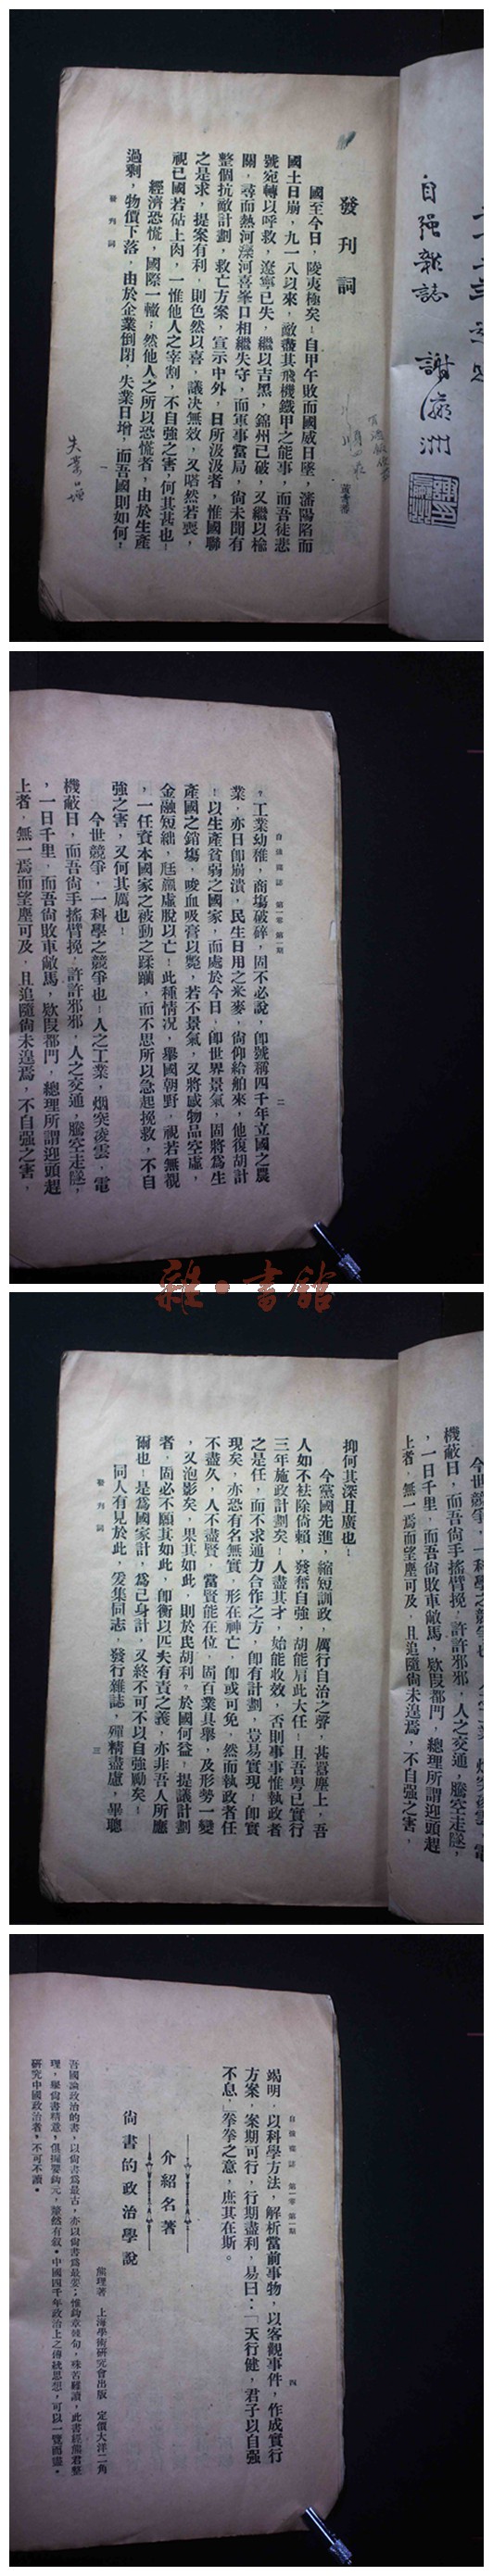 自强雜誌 謝瀛洲
發刊詞
國至今日，陵夷極矣！自甲午敗而國威日墜，瀋陽陷而
國土日崩，九一八以來，敵盡其飛機鐵甲之能事，而吾徒悲
號宛轉以呼救，遼寧已失，繼以吉黑，錦州已破，又繼以榆
關，尋而熱河灤河喜峯口相繼失守，而軍事當局，尙未聞有
整個抗敵計劃，救亡方案，宣示中外，日所汲汲者，惟國聯
之是求，提案有利，則色然以喜，議決無效，又嗒然若喪，
視已國若砧上肉，一惟他人之宰割，不自強之害，何其甚也！
經濟恐慌，國際一轍；然他人之所以恐慌者，由於生產
過剩，物價下落，由於企業倒閉，失業日增，而吾國則如何！
發刊詞
一
失業日增
自強雜誌 第一卷 第一期
二
？工業幼稚，商塲破碎，固不必說，卽號稱四千年立國之農
業，亦日卽崩潰，民生日用之米麥，尙仰給舶來，他復胡計
！以生產貧弱之國家，而處於今日，卽世界景氣，固將爲生
產國之銷塲，吸血吸膏以斃，若不景氣，又將感物品空虛，
金融短絀，尫羸虛脫以亡！此種情况，舉國朝野，視若無覩
，一任資本國家之被動之蹂躪，而不思所以急起挽救，不自
強之害，又何其厲也！
今世競爭，一科學之競爭也！人之工業，烟突凌雲，電
機蔽日，而吾尙手搖臂挽，許許邪邪，人之交通，騰空走隧，
，一日千里，而吾尙敗車敝馬，欵叚都門，總理所謂迎頭趕
上者，無一焉而望塵可及，且追隨尙未遑焉，不自强之害，
今世競爭，一科學之競爭也
機蔽日，而吾尙手搖臂挽，許許邪邪，人之交通，騰空走隧，
，一日千里，而吾尙敗車敝馬，欵叚都門，總理所謂迎頭趕
上者，無一焉而望塵可及，且追隨尙未遑焉，不自强之害，
抑何其深且廣也！
今黨國先進，縮短訓政，厲行自治之聲，甚囂塵上，吾
人如不祛除倚賴，發奮自強，胡能肩此大任！且吾粵已實行
三年施政計劃矣！人盡其才，始能收效，否則事事惟執政者
之是任，而不求通力合作之方，卽有計劃，豈易實現！卽實
現矣，亦恐有名無實，形在神亡，卽或可免，然而執政者任
不盡久，人不盡賢，當賢能在位，固百業具舉，及形勢一變
，又泡影矣，果其如此，則於民胡利？於國何益！提議計劃
者，固必不願其如此，卽衡以匹夫有責之義，亦非吾人所應
爾也！是爲國家計，爲己身計，又終不可不以自強勵矣！
同人有見於此，爰集同志，發行雜誌，殫精盡慮，畢聰
發刊詞
三
雜·書館
自強雜誌 第一卷 第一期
四
竭明，以科學方法，解析當前事物，以客觀事件，作成實行
方案，案期可行，行期盡利，易曰：「天行健，君子以自强
不息，」拳拳之意，庶其在斯。
介紹名著
尙書的政治學說
熊理著 上海學術研究會出版 定價大洋二角
吾國論政治的書，以尙書爲最古，亦以尙書爲最要；惟鈎章棘句，殊苦難讀，此書經熊君整
理，舉尙書精意，俱提要鈎元，粲然有叙。中國四千年政治上之傳統思想，可以一覽而盡。
研究中國政治者，不可不讀。